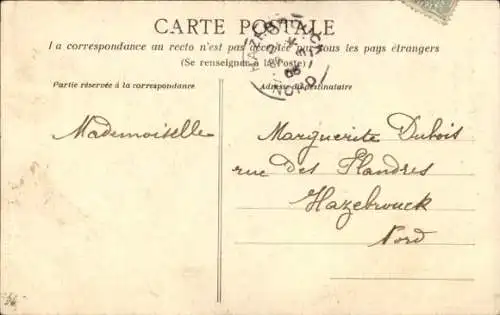 CARTE POSTALE
La correspondance au recto n'est pas acceptée par tous les pays étrangers
(Se renseigner à la Poste)
Partie réservée à la correspondance
Adresse du destinataire
NORD
Mademoiselle
Marguerite Dubois
rue Des Flandres
Hazebrouck
Nord